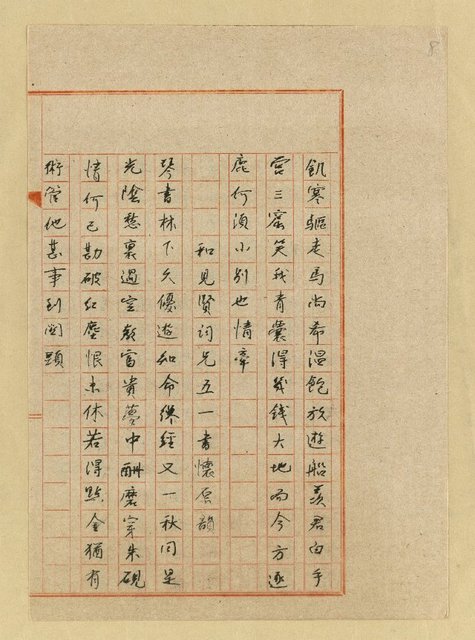 8
飢寒驅走馬尚希温飽放遊船羨君白手
營三窟笑我青囊得幾錢大地而今方逐
鹿何須小別也情牽
和見賢詞兄五一書懷原韻
琴書林下久優遊知命縲經又一秋同是
光陰愁裏過空教富貴夢中酬磨穿朱硯
情何已勘破紅塵恨未休若得點金猶有
術管他甚事到問題